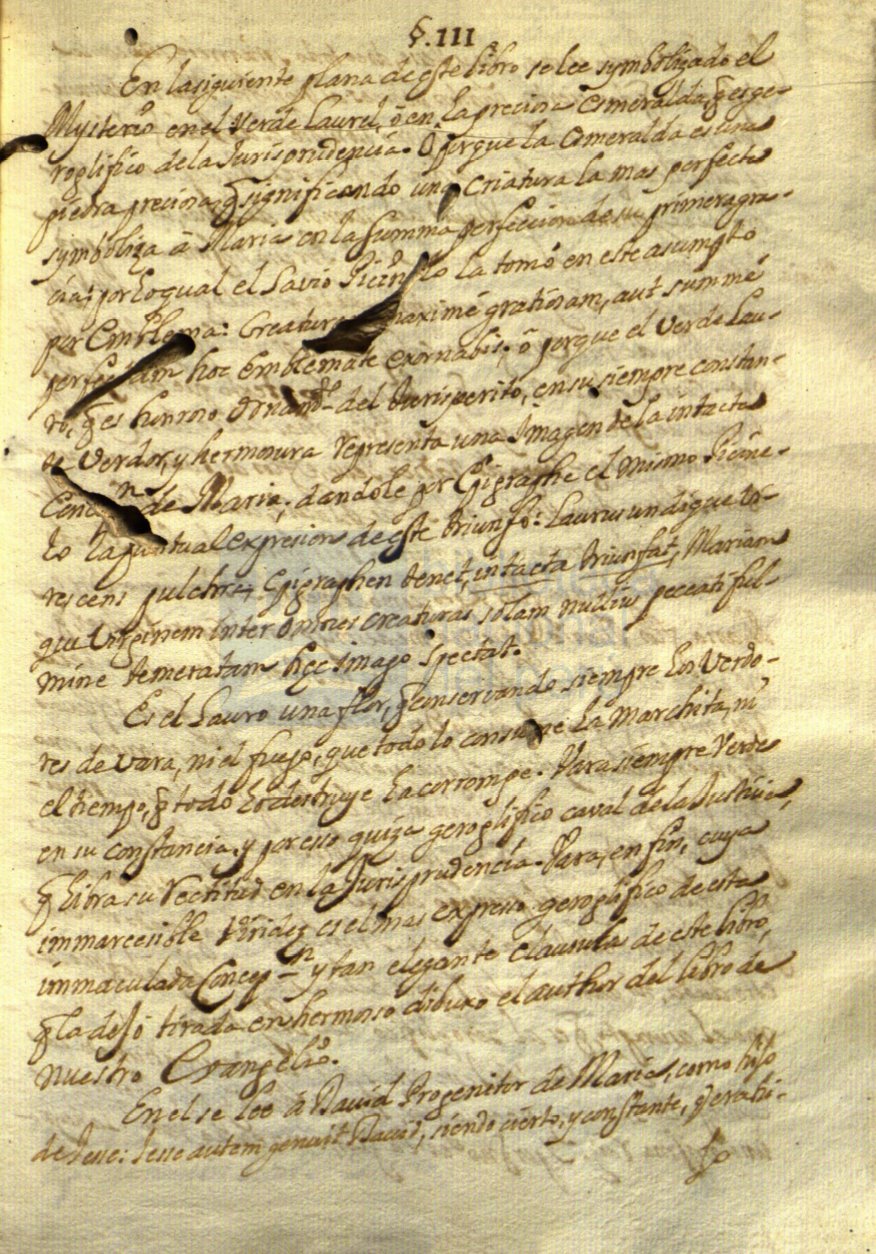 §. III
En la siguiente plana de este libro se lee symbolizado el
Mysterio en el verde Laurel, ō en la preciosa Esmeralda, q̃ es ge-
roglifico de la Jurisprudencia. O porque la Esmeralda es una
piedra preciosa, q̃ significando una criatura la mas perfecta
symboliza â Maria en la summa perfeccion de su primera gra-
cia; por lo qual el Savio la tomó en este asumpto
por Emblema: Creatura maximé gratiosam, aut summé
hoc Emblemate exornabis; ō porque el verde Lau-
ro, q̃ es honroso del Jurisperito, en su siempre constan-
te verdor, y hermosura representa una Imagen de la intacta
de Maria; dandole por Epigraphe el mismo Picine-
lo la puntual expresion de este triunfo: Laurus undique vi-
rescens pulchré, Epigraphen tenet, intacta triunfat, Mariam
que Virginem inter omnes creaturas solam nullius peccati ful-
mine temeratam hęc imago spectat.
Es el Lauro una flor, q̃ conservando siempre los verdo-
res de vara, ni el fuego, que todo lo consume la marchita, ni
el tiempo, q̃ todo lo destruye la corrompe. Vara siempre verde
en su constancia, y por esso quiza geroglifico caval de la Justicia,
q̃ libra su rectitud en la Jurisprudencia. Vara, en fin, cuya
immarcesible viridez es el mas expreso geroglifico de esta
immaculada Concepn y tan elegante clausula de este libro,
q̃ la dejó tirada en hermoso dibuxo el author del libro de
nuestro Evangelio.
En el se lee â David Progenitor de Maria, como hijo
de Jesse: Jesse autem genuit David, siendo cierto, y constante,